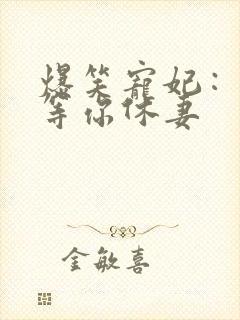 爆笑寵妃：
等你休妻
金敏喜